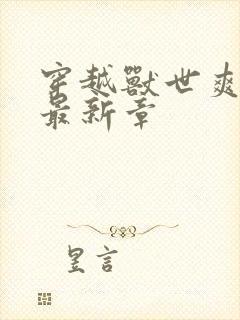 穿越獸世爽
最新章
昱言